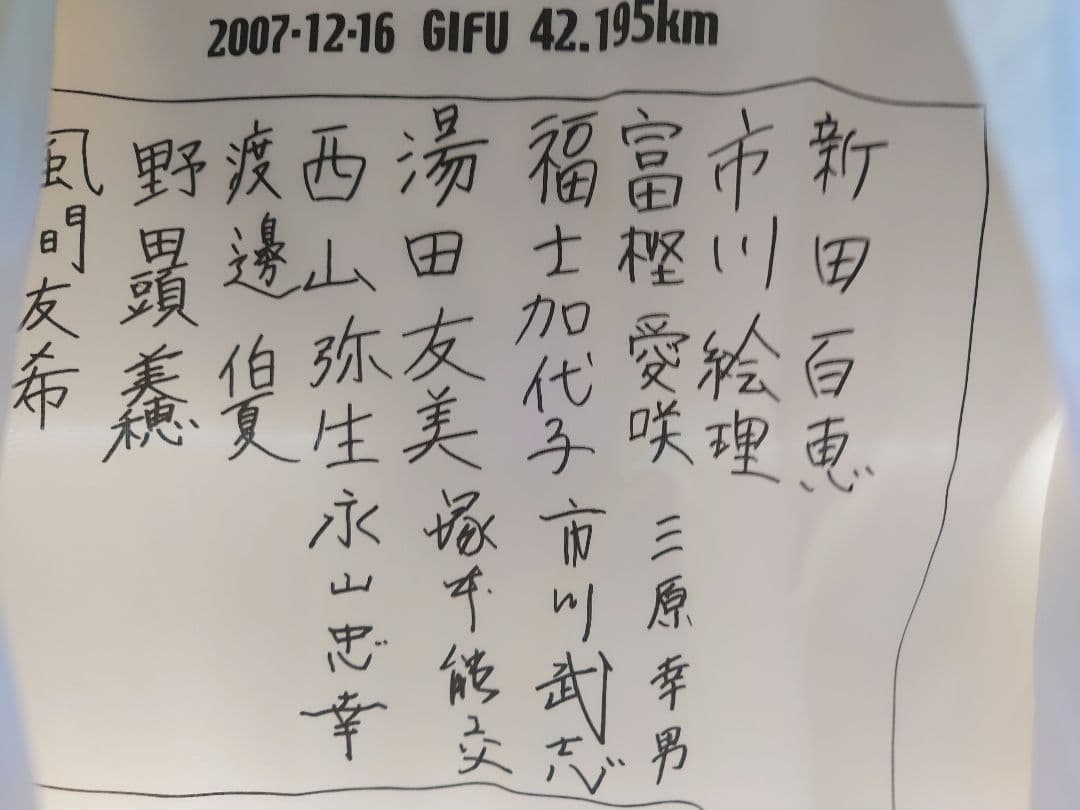 2007-12-16 GIFU 42.195km
新田百恵
市川絵理
富樫愛咲 三原幸男
福士加代子 市川武志
湯田友美 塚本能交
西山弥生 永山忠幸
渡邊伯夏
野田頭美穂
風間友希